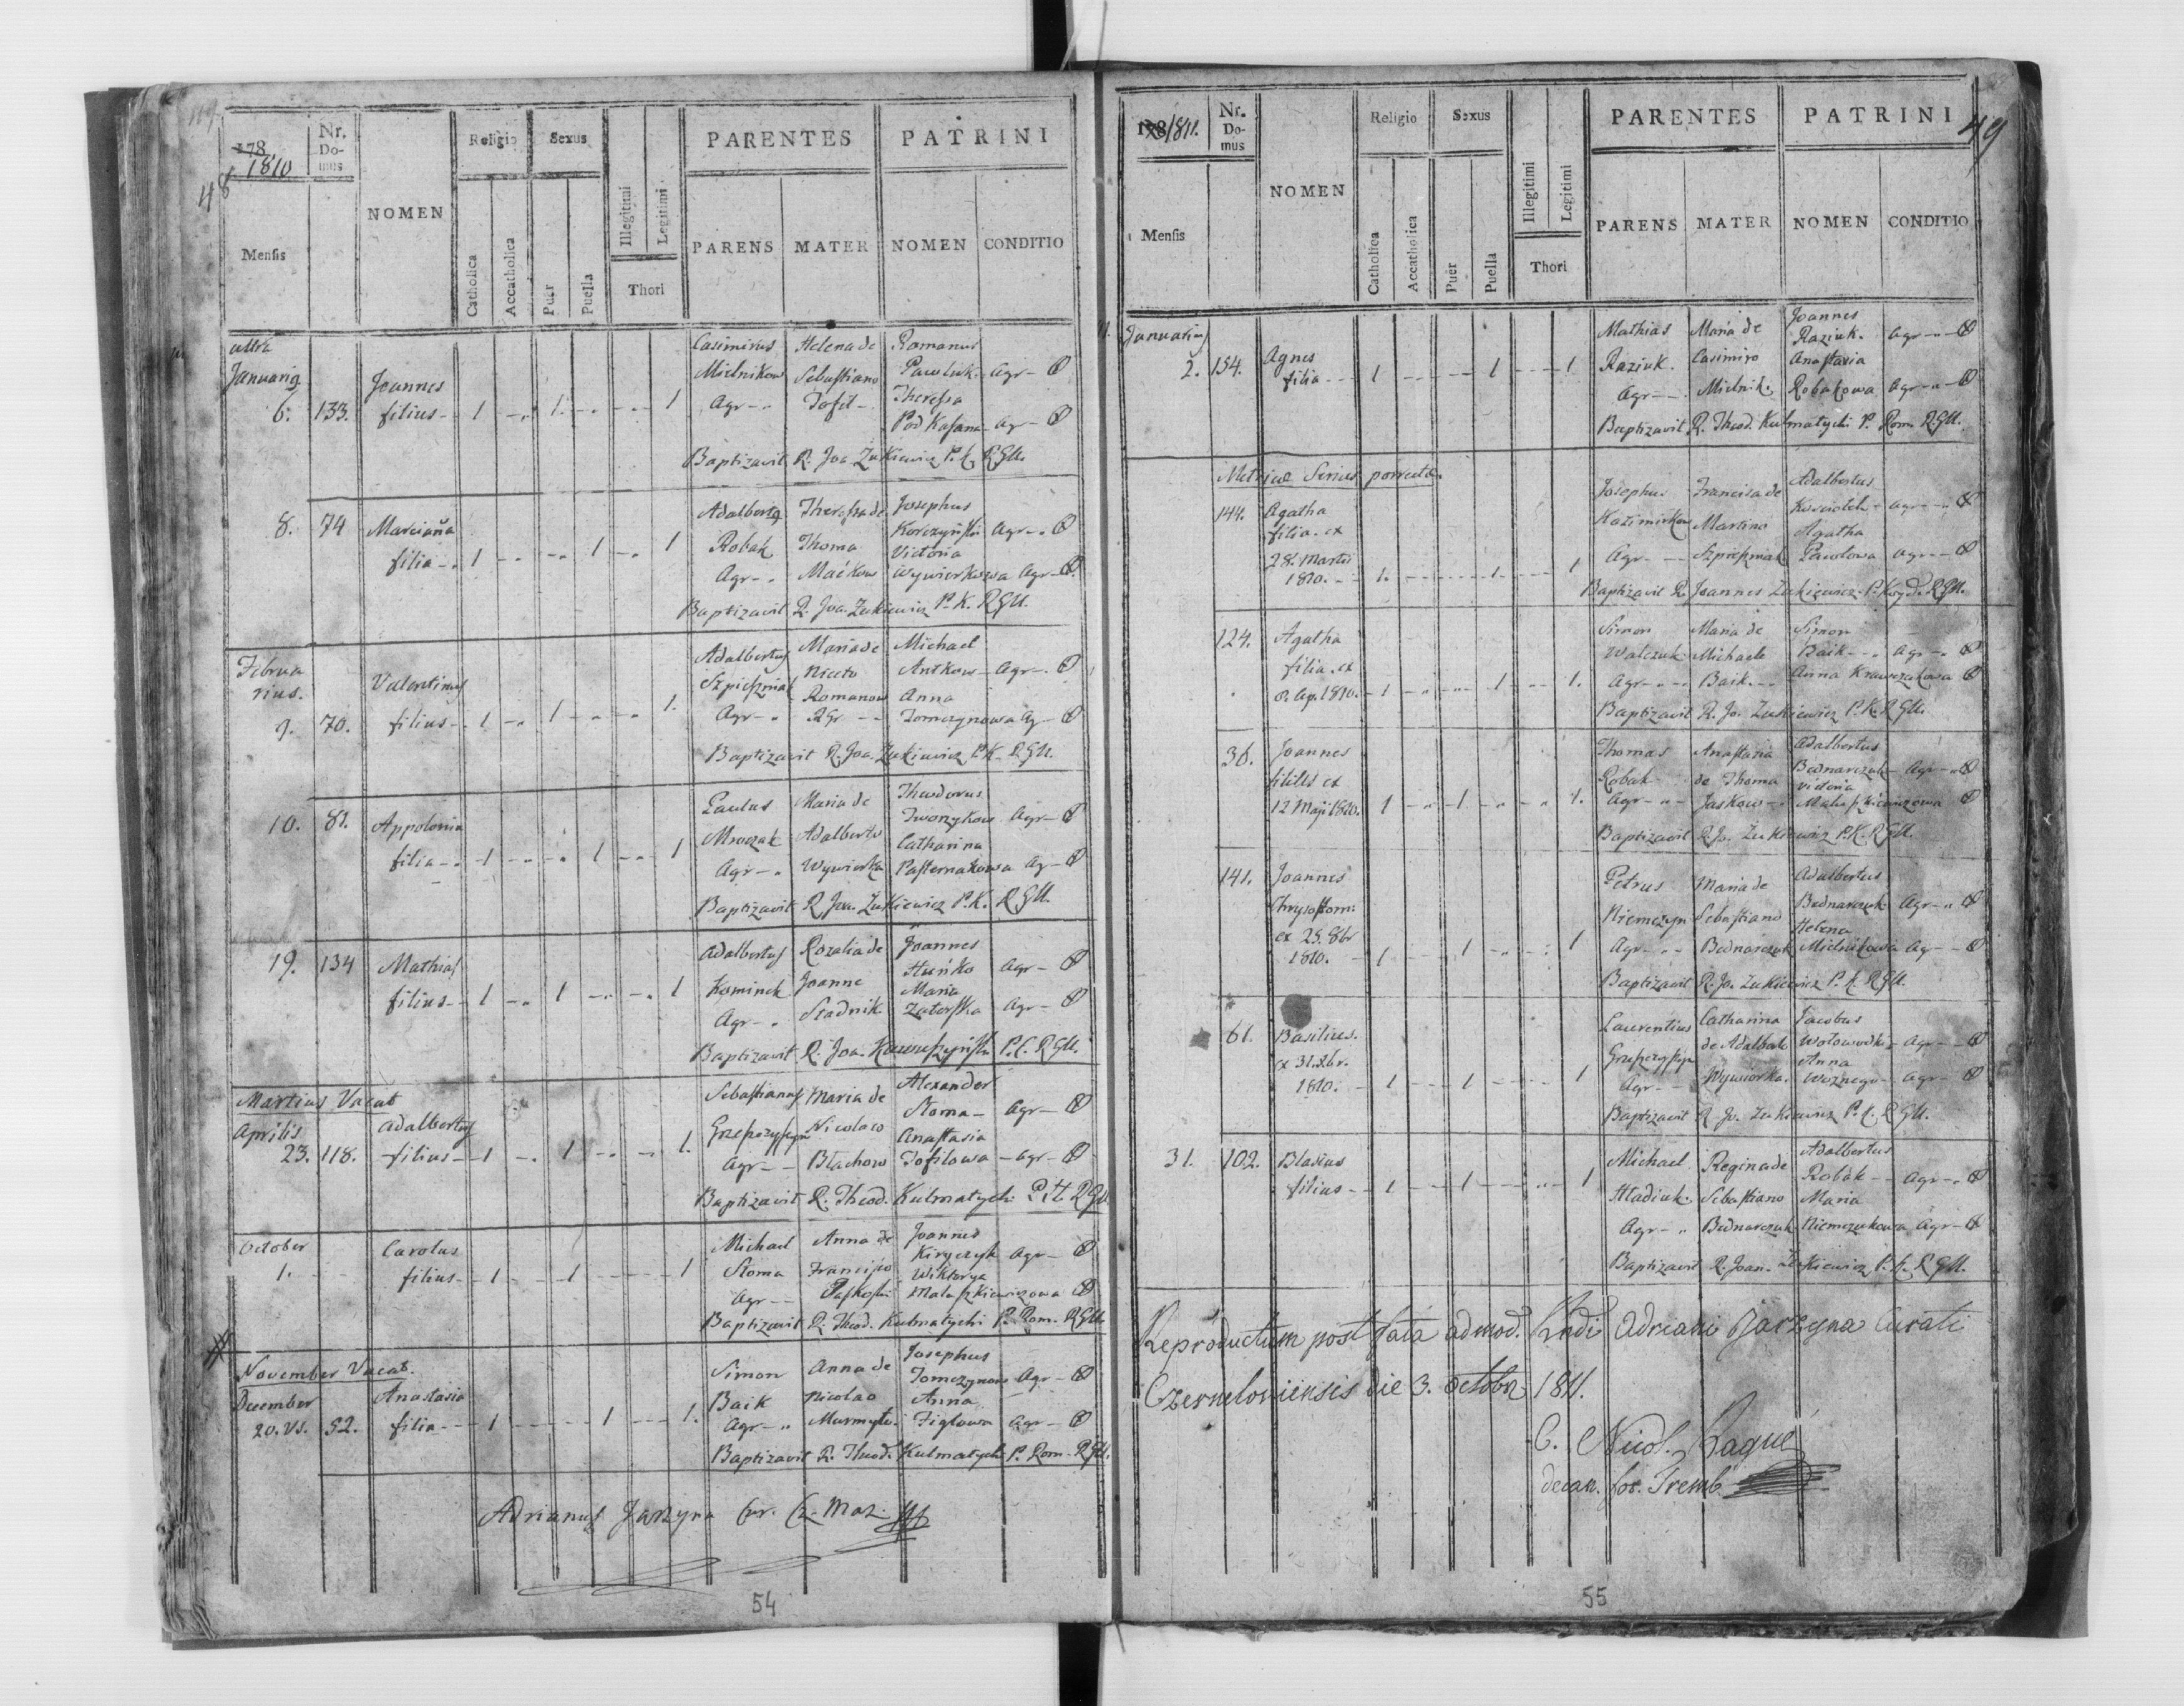 119
48
178
1810
Nr. Domus
NOMEN
Religio
Sexus
Illegitimi
Legitimi
PARENTES
PATRINI
Mensis
Catholica
Accatholica
Puer
Puella
Thori
PARENS
MATER
NOMEN
CONDITIO
Casimirus Helena de Romanus
Januarij Joannes Mielnikow Sebastiano Pawluk Agr
6. 133. filius 1 1 1 Agr Tofil Theressa
Agr
Baptizavit R. Joa. Zukiewicz P. K. RGU.
Adalbertg Theressa de Josephus
8. 74 Marcianna Robak Thoma Korczynski Agr
filia 1 1 1 Agr Maćkow Victoria
Wywiorkowa Agr
Baptizavit R. Joa. Zukiewicz P. K. RGU.
Februarius. Valentinus Adalbertus Maria de Michael
9. 70. filius 1 1 1. Szpieszniak Niceto Antkow Agr
Agr Romanow Anna
Tomczynowa Ag
Baptizavit R. Joa. Zukiewicz P. K. RGU.
10. 81. Appolonia Paulus Maria de Theodorus
filia 1 1 1 Mroczak Adalberto Iwonykow Agr
Agr Wywiorka Catharina
Pasternakowa Ag
Baptizavit R. Joa. Zukiewicz P. K. RGU.
19. 134 Mathias Adalbertus Rozalia de Joannes
filius 1 1 1 Kominek Joanne Huńko Agr
Agr Stadnik Maria
Zatorska Agr
Baptizavit R. Joa. P. C. RGU.
Martius Vacat
Aprilis Adalbertus Sebastianus Maria de Alexander
23. 118. filius 1 1 1. Nicolao Stoma Agr
Agr Błachow Anastasia
Tofilowa Agr
Baptizavit R. Theod. Kulmatycki RGU.
October Carolus Michael Anna de Joannes
1. filius 1 1 1 Stoma Francisco Kiryczyk Agr
Agr Paskoski Wiktorya
Małaszkiewiczowa
Baptizavit R. Theod. Kulmatycki P. Rom. RGU.
November Vacat.
December Anastasia Simon Anna de Josephus
20. V.S. 52. filia 1 1 1. Baik Nicolao Tomczynow Agr
Agr Murmyło Anna
Figlowa Agr
Baptizavit R. Theod. Kulmatycki P. Rom. RGU.
Adrianus Jarzyna Cur. Cz. Maz.
54
49
178 1811.
Nr. Domus
NOMEN
Religio
Sexus
Illegitimi
Legitimi
PARENTES
PATRINI
Mensis
Catholica
Accatholica
Puer
Puella
Thori
PARENS
MATER
NOMEN
CONDITIO
Januarius Mathias Maria de Joannes
2. 154. Agnes Raziuk. Casimiro Raziuk. Agr
filia 1 1 1 Agr Mielnik. Anastasia
Robakowa Agr
Baptizavit R. Theod. Kulmatycki P. Rom. RGU.
Metricae Serius porrectae.
144. Agatha Josephus Francisca de Adalbertus
filia ex Kazimirkow Martino Agr
28. Martii Agr Szpieszniak Agatha
1810. 1. 1. 1 Pawłowa Agr
Baptizavit R. Joannes Zukiewicz P. Koyd. RGU.
124. Agatha Simon Maria de Simon
filia ex Walczuk Michaele Baik Agr
8. Ap. 1810. 1 1 1. Agr Baik Anna Krawczukowa
Baptizavit R. Jo. Zukiewicz P. K. RGU.
36. Joannes Thomas Anastasia Adalbertus
filius ex Robak de Thoma Bednarczuk Agr
12 Maji 1810. 1 1 1. Agr Jaskow Victoria
Małaszkiewiczowa
Baptizavit R. Jo. Zukiewicz P. K. RGU.
141. Joannes Petrus Maria de Adalbertus
Chrysostom: Niemczyn Sebastiano Bednarczuk Agr
ex 25. 8br Agr Bednarczuk Helena
1810. 1 1 1 Mielnikowa Ag
Baptizavit R. Jo. Zukiewicz P. K. RGU.
61. Basilius. Laurentius Catharina Jacobus
ex 31. 1810. 1 1 1 de Adalberto Agr
Agr Wywiorka. Anna
Woznego Agr
Baptizavit R. Jo. Zukiewicz P. K. RGU.
31. 102. Blasius Michael Regina de Adalbertus
filius 1 1 1 Hladiuk. Sebastiano Robak Agr
Agr Bednarczuk Maria
Niemczukowa Agr
Baptizavit R. Joan. Zukiewicz P. K. RGU.
Reproductum post fata admod. Rndi Adriani Jarzyna Curati
Czerneloviensis die 3. Octobr 1811.
C. Nicol. Rague
decan. for. Tremb
55